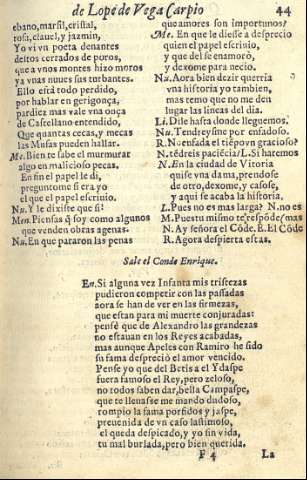 de Lope de Vega Carpio 44
ebano, marfil, cristal,
rosa, clauel, y jazmin,
Yo vi vn poeta denantes
destos cerrados de puros,
que a vnos montes hizo moros
ya vnas nuues sus turbantes.
Ello està todo perdido,
por hablar en gerigonça,
pardiez mas vale vna onça
de Castellano entendido,
Que quantas cecas, y mecas
las Musas pueden hallar.
Me. Bien te sabe el murmurar
algo en maliciosso pecas.
En fin el papel le di,
preguntome si era yo
el que el papel escriuio.
Nu. Y le dixiste que si:
Men. Piensas q̃ soy como algunos
que venden obras agenas.
Nu. En que pararon las penas
que amores son importunos?
Me. En que le diesse a desprecio
quien el papel escriuio,
y que del se enamorò,
y dexome para necio.
Nu. Aora bien dezir querria
vna historia yo tambien,
mas temo que no me den
lugar las lineas del dia.
Li. Dile hasta donde lleguemos.
Nu. Tendreysme por enfadoso.
R. No enfada el tiẽpo vn gracioso?
N. tẽdreis paciẽcia? L. Si haremos
N. En la ciudad de Vitoria
quise vna dama, prendose
de otro, dexome, y casose,
y aqui se acaba la historia.
L. Pues no es mas larga? N. no es
M. Puestu mismo te respõdes mas
N. Ay señora el Cõde. E. El Cõde
R. Agora despierta estas.
Sale el Conde Enrique.
En. Si alguna vez Infanta mis tristezas
pudieron competir con las passadas
aora se han de ver en las firmezas,
que estan para mi muerte conjuradas:
pensè que de Alexandro las grandezas
no estauan en los Reyes acabadas,
mas aunque Apeles con Ramiro he sido
su fama despreciò el amor vencido.
Pense yo que del Betis a el Ydaspe
fuera famoso el Rey, pero zeloso,
no todos saben dar, bella Campaspe,
que te lleuasse me mando dudoso,
rompio la fama porfidos y jaspe,
preuenida de vn caso lastimoso,
el queda despicado, y yo sin vida,
tu mal burlada, pero bien querida.
F 4 La